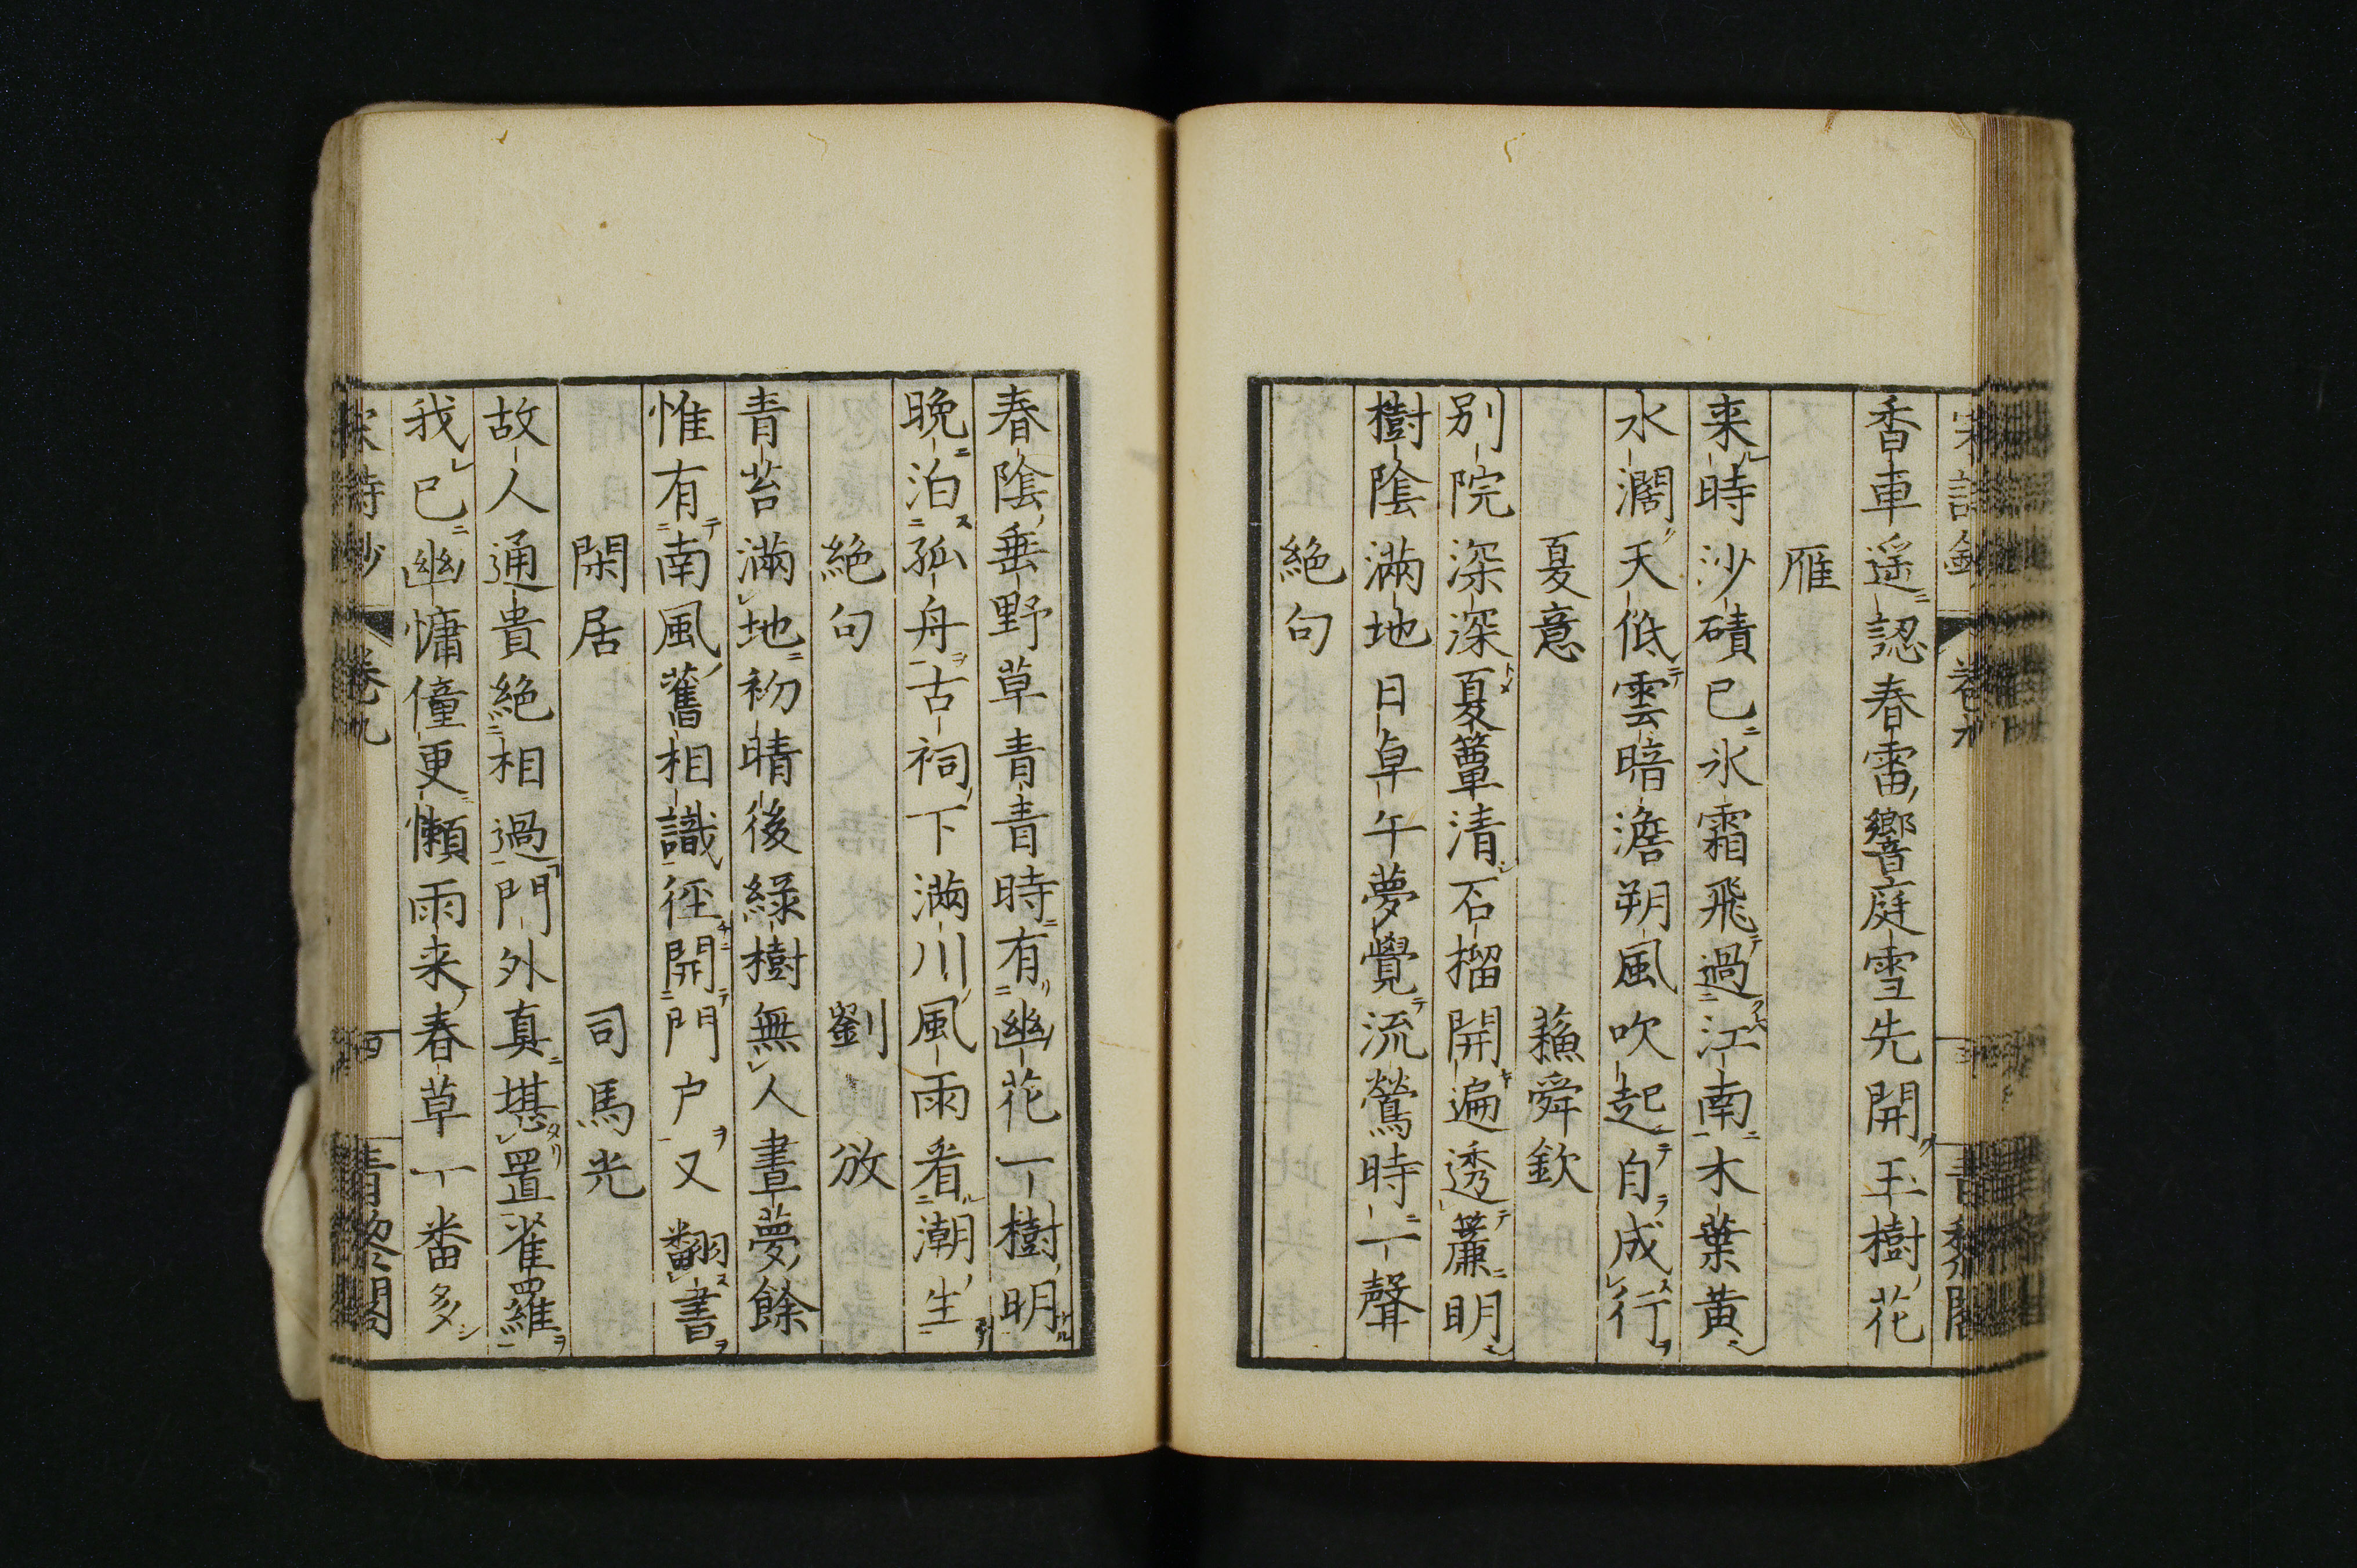 香車遥認春雷響庭雪先開玉樹花
雁
来時沙磧已氷霜飛過江南木葉黄
水濶天低雲暗澹朔風吹起自成行
夏意 蘓舜欽
別院深深夏簟清石榴開遍透簾明
樹陰滿地日卓午夢覺流鶯時一聲
絶句
春陰垂野草青青時有幽花一樹明
晩泊孤舟古祠下滿川風雨看潮生
絶句 劉攽
青苔滿地初晴後緑樹無人晝夢餘
惟有南風舊相識徑開門户又翻書
閑居 司馬光
故人通貴絶相過門外真堪置雀羅
我已幽慵僮更懶雨来春草一畨多
宋詩鈔 卷九 四 青黎閣